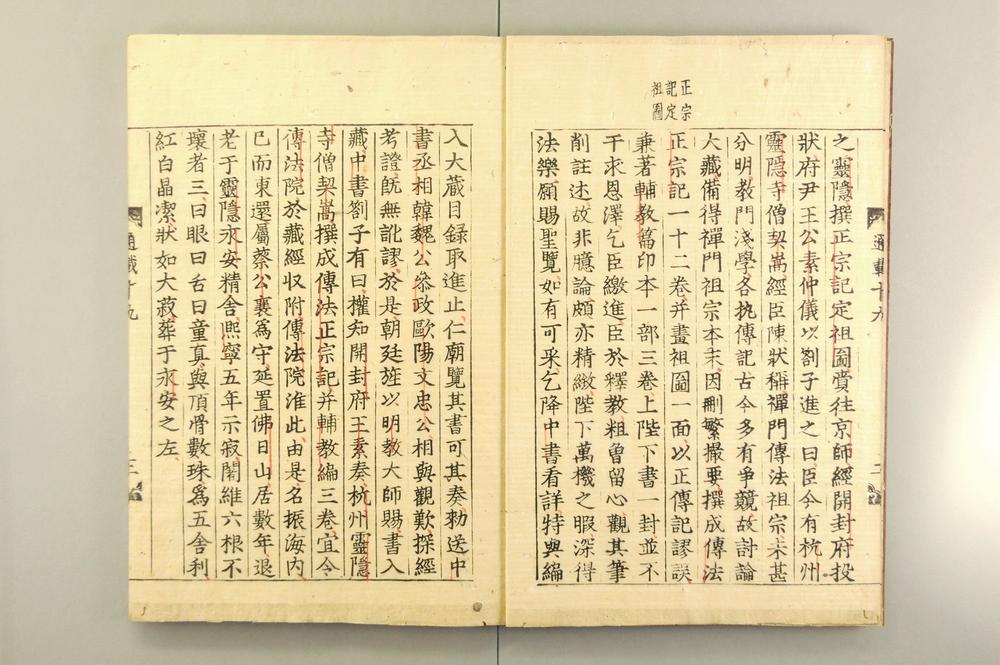 正宗
記定
祖圖
通載十九
二
之靈隱撰正宗記定祖圖賫往京師經開封府投
狀府尹王公素仲儀以劄子進之曰臣今有杭州
靈隱寺僧契嵩經臣陳狀稱禪門傳法祖宗未甚
分明教門淺學各執傳記古今多有爭競故討論
大藏備得禪門祖宗本末因刪繁撮要撰成傳法
正宗記一十二卷并畫祖圖一面以正傳記謬誤
兼著輔教篇印本一部三卷上陛下書一封並不
干求恩澤乞臣繳進臣於釋教粗曾留心觀其筆
削註述故非臆論頗亦精緻陛下萬機之暇深得
法樂願賜聖覽如有可采乞降中書看詳特與編
入大藏目録取進止仁廟覽其書可其奏勑送中
書丞相韓魏公叅政歐陽文忠公相與觀歎探經
考證旣無訛謬於是朝廷旌以明教大師賜書入
藏中書劄子有曰權知開封府王素奏杭州靈隱
寺僧契嵩撰成傳法正宗記并輔教編三卷宜令
傳法院於藏經収附傳法院准此由是名振海内
已而東還屬蔡公襄爲守延置佛日山居數年退
老于靈隱永安精舍熈寧五年示寂闍維六根不
壞者三曰眼曰舌曰童真與頂骨數珠爲五舍利
紅白晶潔狀如大菽葬于永安之左
通載十九
三